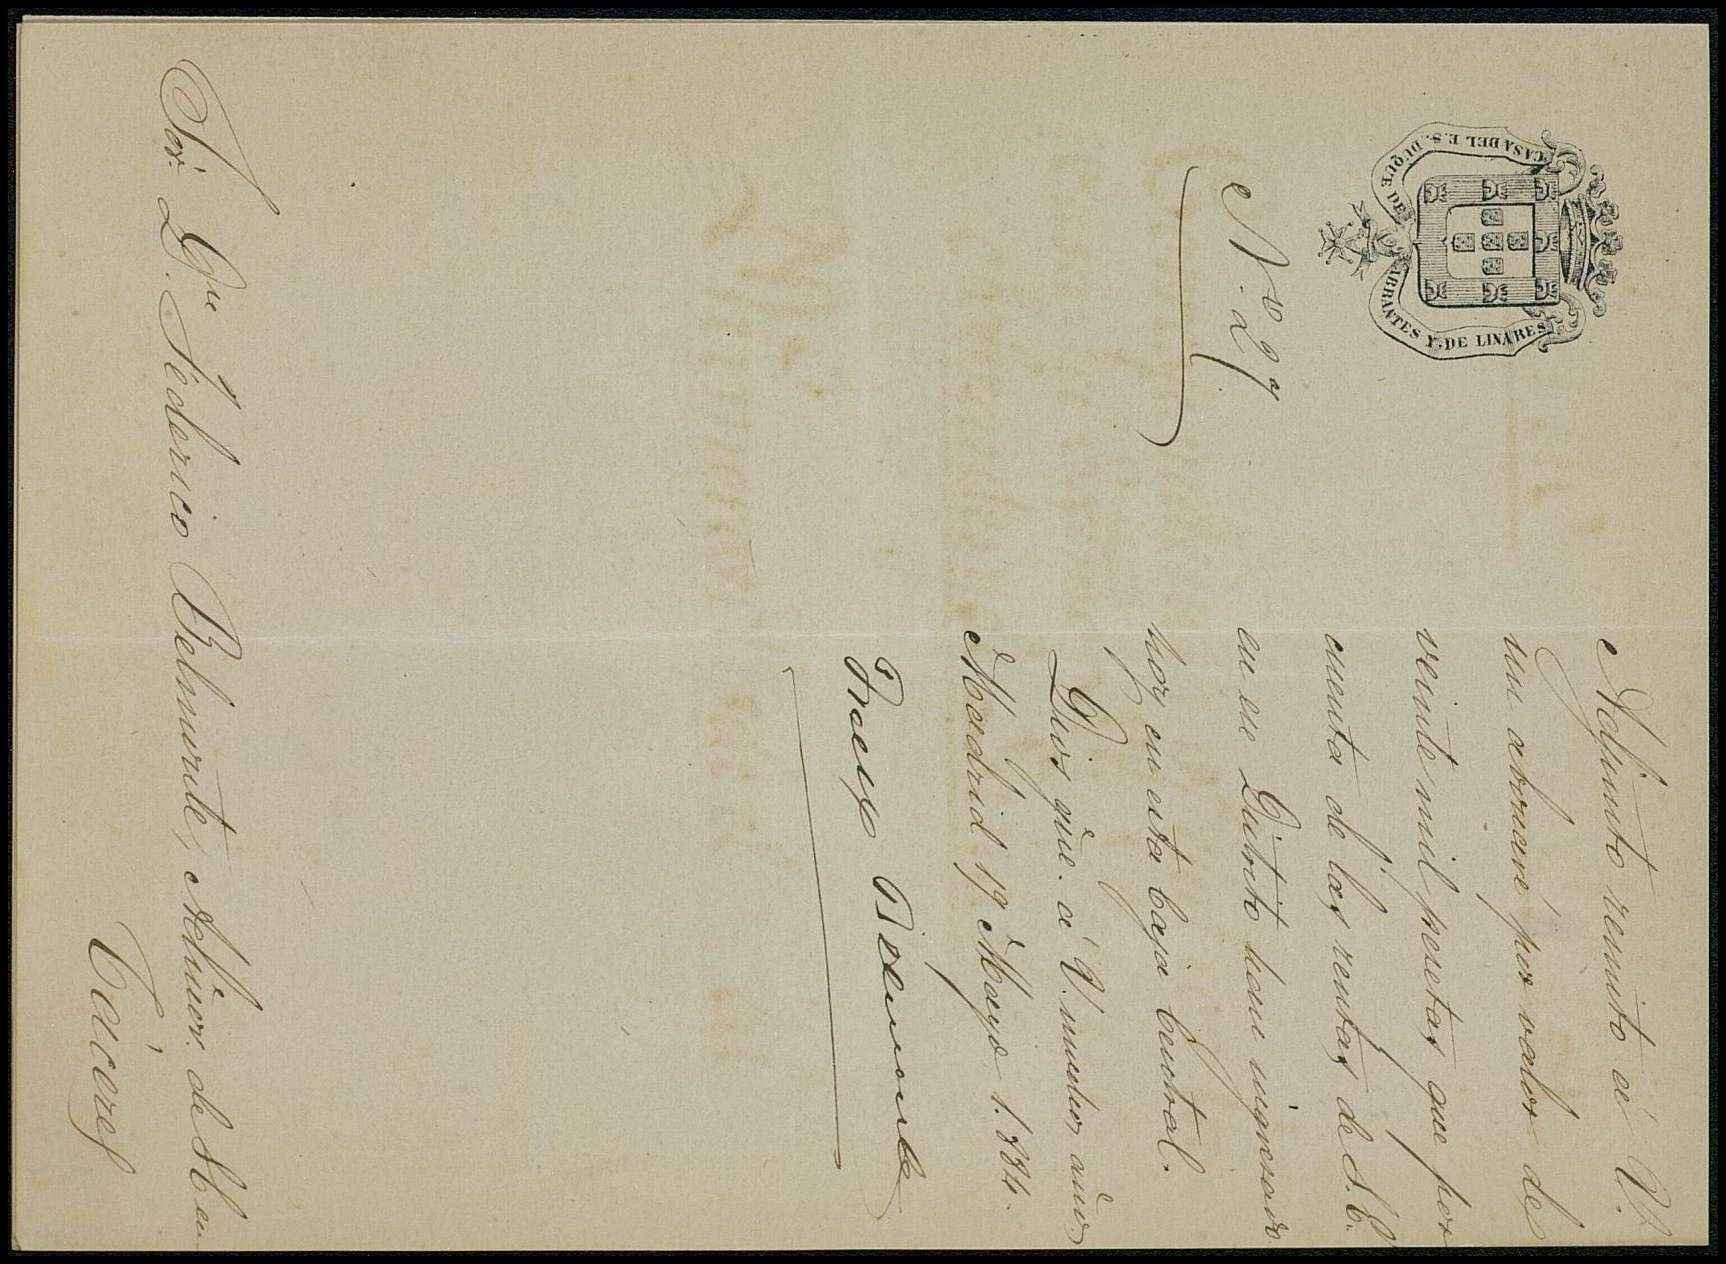 CASA DEL E. S. DUQUE DE ABRANTES Y DE LINARES
N.º 29
Adjunto remito á V.
un abonaré por valor de
veinte mil pesetas que por
cuenta de las rentas de S. E.
en ese Distrito han ingresado
hoy en esta Caja Central.
Dios gue. á V. muchos años
Madrid 19 Mayo 1.884.
Belmonte
Sor. D. Federico Belmonte, Admor. de S. E. en
Cáceres